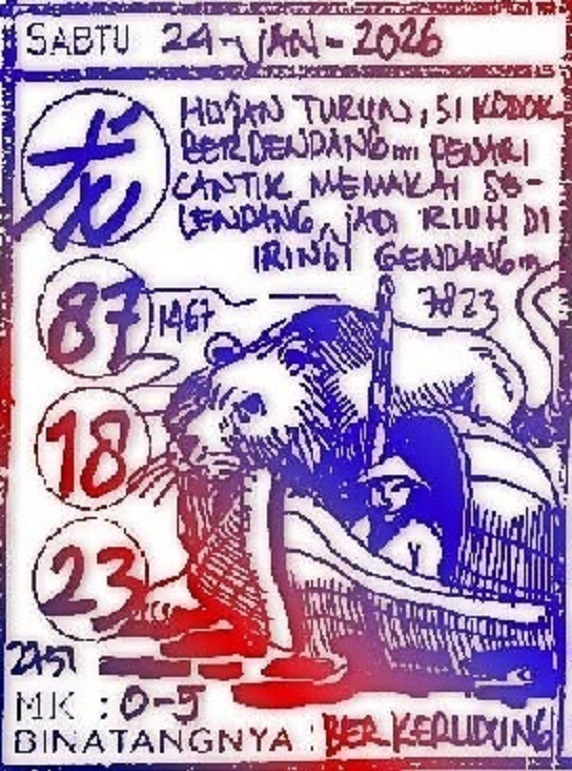 SABTU 24-JAN-2026
HUJAN TURUN, SI KODOK
BERDENDANG... PENARI
CANTIK MEMAKAI SE-
LENDANG, JADI RIUH DI
IRINGI GENDANG...
87
1467
7823
18
23
MK : 0-5
BINATANGNYA : BERKERUDUNG